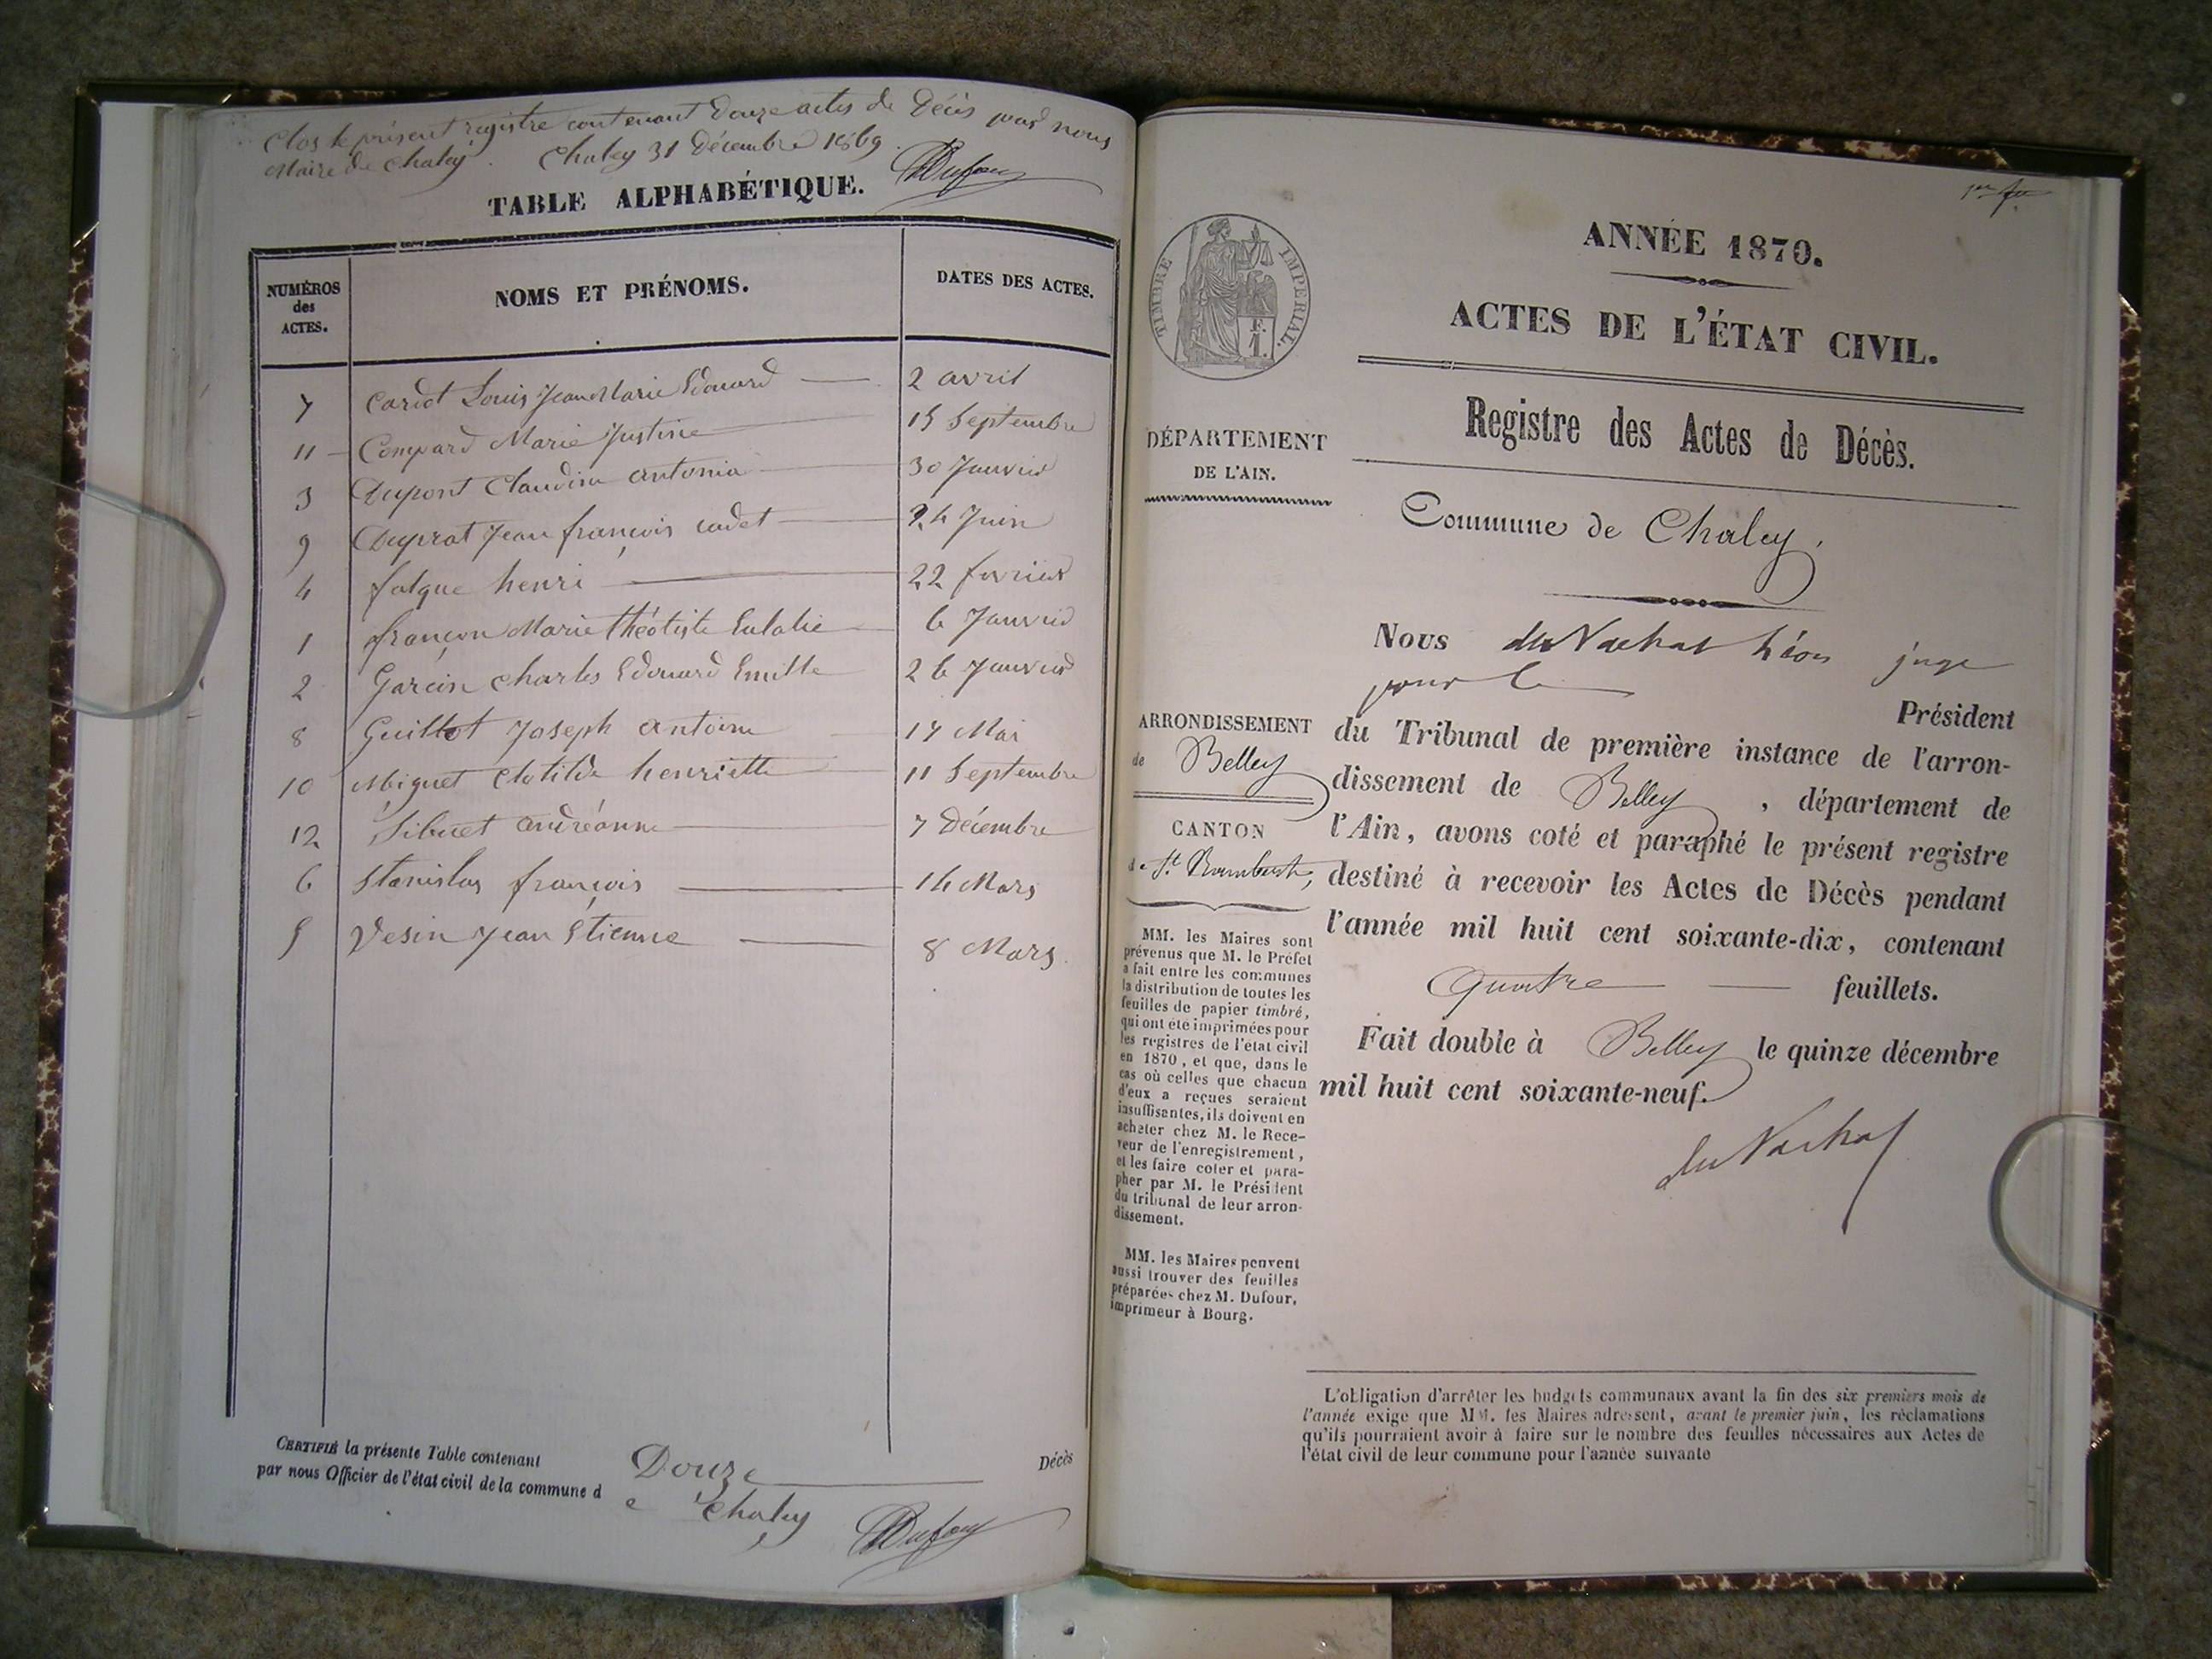 Clos le présent registre contenant Douze actes de Décès par nous
Maire de Chaley. Chaley 31 Décembre 1869.
Dufour
TABLE ALPHABÉTIQUE.
NUMÉROS des ACTES. NOMS ET PRÉNOMS. DATES DES ACTES.
7 Cardot Louis Jean Marie Edouard 2 avril
11 Compard Marie Justine 15 Septembre
3 Dupont Claudine Antonia 30 Janvier
9 Duprat Jean françois cadet 24 Juin
4 falque henri 22 fevrier
1 françon Marie théotiste Eulalie 6 Janvier
2 Garcin Charles Edouard Emille 26 Janvier
8 Guillot Joseph Antoine 17 Mai
10 Miguet Clotilde henriette 11 Septembre
12 Sibuet andréanne 7 Décembre
6 Stanislas françois 14 Mars
5 Vesin Jean Étienne 8 Mars.
CERTIFIÉ la présente Table contenant Douze Décès
par nous Officier de l'état civil de la commune d e Chaley
Dufour
1er
ANNÉE 1870.
ACTES DE L'ÉTAT CIVIL.
TIMBRE IMPERIAL.
F.
1.
Registre des Actes de Décès.
DÉPARTEMENT
DE L'AIN.
Commune de Chaley.
Nous du Nachat Léon juge
pour le
Président
du Tribunal de première instance de l'arron-
dissement de Belley, département de
l'Ain, avons coté et paraphé le présent registre
destiné à recevoir les Actes de Décès pendant
l'année mil huit cent soixante-dix, contenant
Quatre feuillets.
Fait double à Belley le quinze décembre
mil huit cent soixante-neuf.
du Nachat
ARRONDISSEMENT
de Belley
CANTON
de St Rambert,
MM. les Maires sont
prévenus que M. le Préfet
a fait entre les communes
la distribution de toutes les
feuilles de papier timbré,
qui ont été imprimées pour
les registres de l'état civil
en 1870, et que, dans le
cas où celles que chacun
d'eux a reçues seraient
insuffisantes, ils doivent en
acheter chez M. le Rece-
veur de l'enregistrement,
et les faire coter et para-
pher par M. le Président
du tribunal de leur arron-
dissement.
MM. les Maires peuvent
aussi trouver des feuilles
préparées chez M. Dufour,
imprimeur à Bourg.
L'obligation d'arrêter les budgets communaux avant la fin des six premiers mois de
l'année exige que MM. les Maires adressent, avant le premier juin, les réclamations
qu'ils pourraient avoir à faire sur le nombre des feuilles nécessaires aux Actes de
l'état civil de leur commune pour l'année suivante